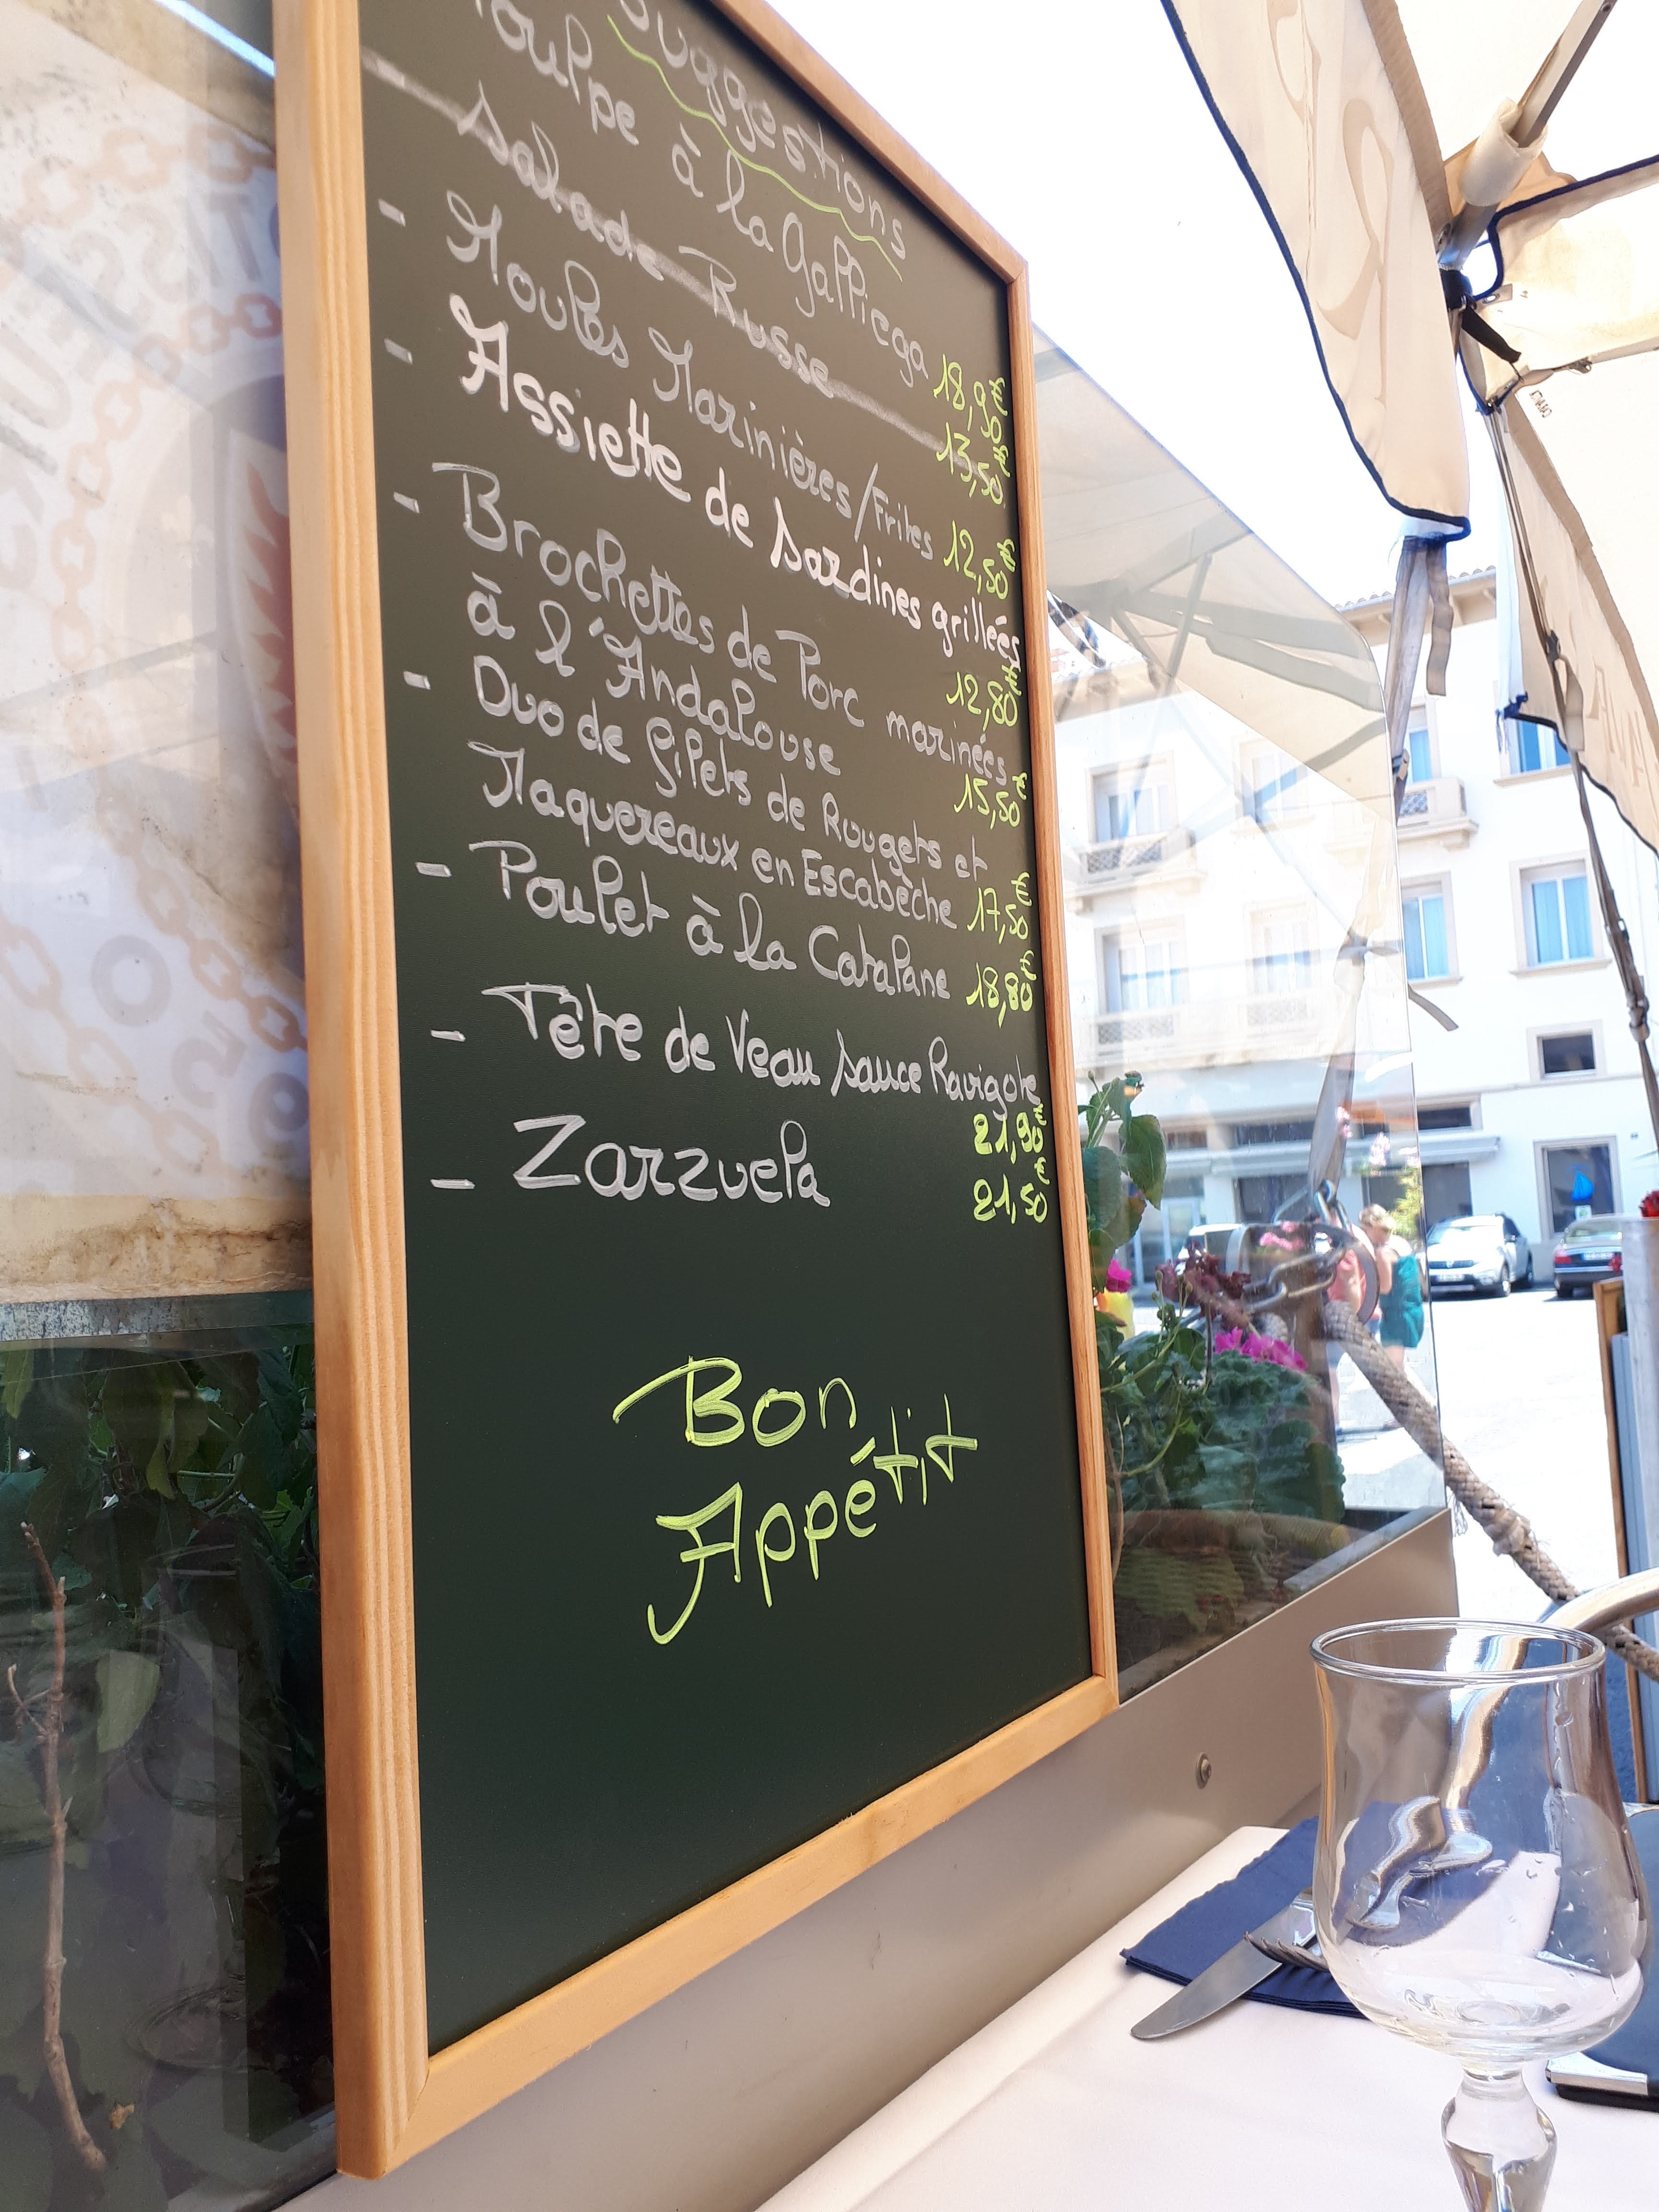 Suggestions
Poulpe à la gallicga 18,90€
Salade Russe 13,50€
- Moules Marinières/Frites 12,50€
- Assiette de Sardines grillées
12,80€
- Brochettes de Porc marinées
à l'Andalouse 15,50€
- Duo de filets de Rougets et
Maquereaux en Escabèche 17,50€
- Poulet à la Catalane 18,80€
- Tête de Veau sauce Ravigote
21,90€
- Zarzuela 21,50€
Bon
Appétit